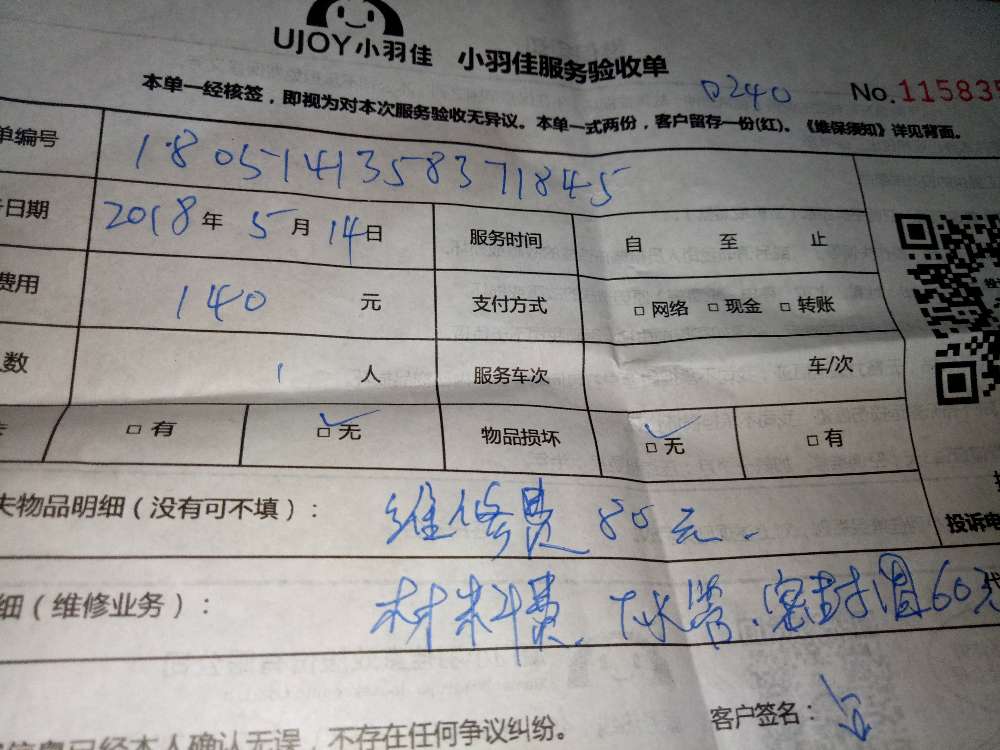 UJOY小羽佳 小羽佳服务验收单
0240 No.115835
本单一经核签，即视为对本次服务验收无异议。本单一式两份，客户留存一份(红)。《维保须知》详见背面。
单编号 180514135837184５
日期 2018年 5月 14日 服务时间 自 至 止
费用 140 元 支付方式 □ 网络 □ 现金 □ 转账
数 1 人 服务车次 车/次
□ 有 □ 无 物品损坏 □ 无 □ 有
失物品明细（没有可不填）： 维修费 80元.
投诉申
细（维修业务）： 材料费、下水管.密封圈60元
客户签名：
信息已经本人确认无误，不存在任何争议纠纷。